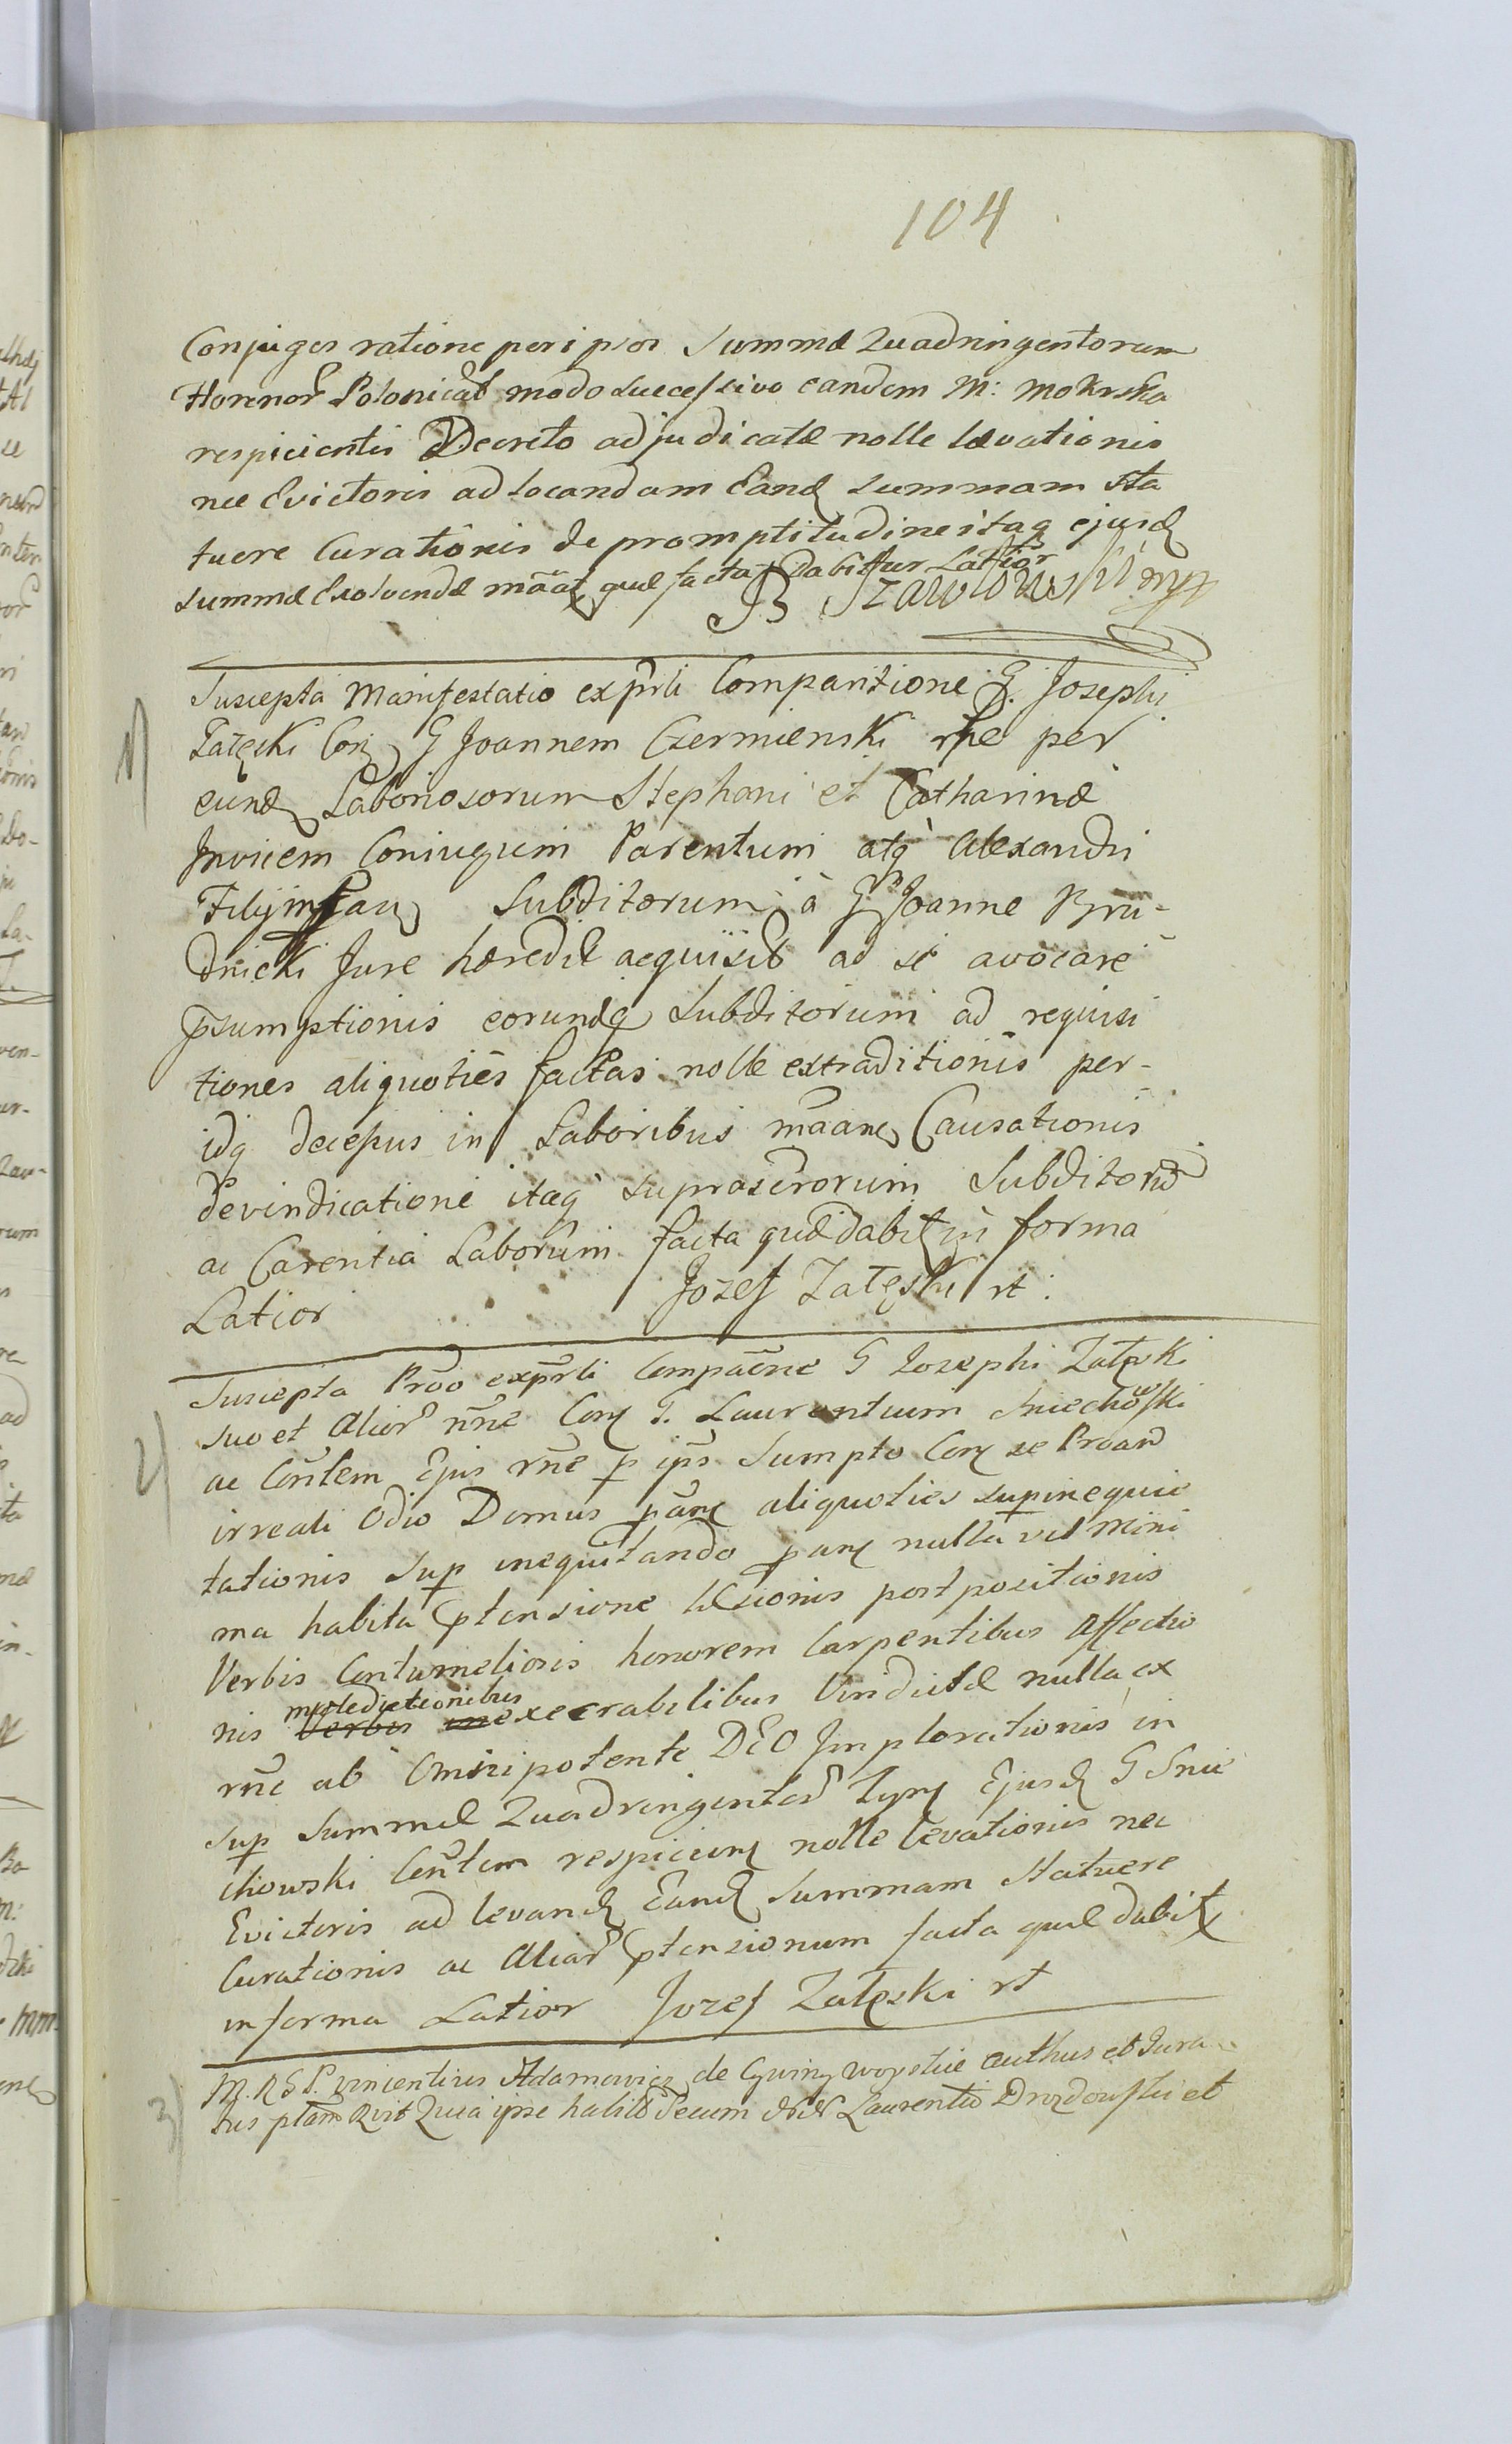 104
Conjuges ratione per ipsos Summæ Quadringentorum
Florenor Polonical modo successivo eandem M: Mokrska
respicientis Decreto adjudicatæ nolle lævationis
nec Evictoris ad locandam Eand summam sta
tuere Curationis de promptitudine itaq ejusd
summæ Exolvendæ mãat quæ facta dabittur Latior
B Szawłowski mp
1) Suscepta Manifestatio exprli Comparitione G. Josephi
Załęski Con G Joannem Czermienski rne per
eund Laboriosorum Stephani et Catharinæ
Invicem Coniugum Parentum atq Alexandri
Filij Subditorum à G Joanne Bru-
dnicki Jure hæredit acquisit ad se avocare
psumptionis eorundq Subditorum ad requisi
tiones aliquoties factas nolle extraditionis per-
idq decessus in Laboribus mãan Causationis
Devindicatione itaq suprascrorum Subditorũ
ac Carentia Laborum facta quæ dabit in forma
Latior Jozef Załęski rt:
2) Suscepta Prõo exprli Compacne G Josephi Załęski
suo et Alior nne Con G. Laurentium Sniechowski
ac Conlem Ejus rne p ips Sumpto Con se Proand
irreali Odio Domus pan aliquoties supinequie
tationis sup inequitando pan nulla vel mini
ma habita ptensione læsionis postpositionis
Verbis Contumeliosis honorem Carpentibus Affectio
nis maledictionibus execrabilibus Vindictæ nulla ex
rne ab Omnipotente DEO Implorationis in
sup Summæ Quadringentor Tyn Ejusd G Snie
chowski Conlem respicien nolle levationis nec
Evictoris ad levand Eand Summam Statuere
Curationis ac Aliar ptensionum facta quæ dabit
in forma Latior Jozef Załęski rt
3) M. R G P. Vincentius Adamowicz de authus et Jura
tus ptam Rvit Quia ipse habito Secum Laurentio Drozdowski et